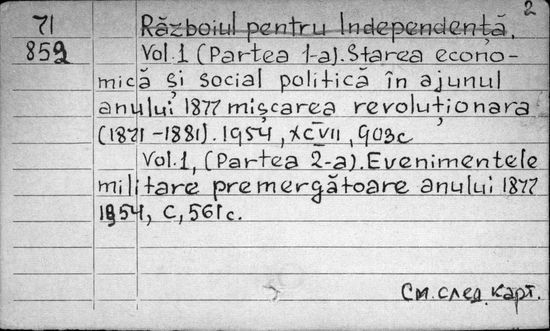 2
71 Războiul pentru Independență.
859 Vol.1 (Partea 1-a). Starea econo-
mică și social politică în ajunul
anului 1877 mișcarea revoluționara
(1821-1881). 1954, XCVII, 903c
Vol.1, (Partea 2-a). Evenimentele
militare premergătoare anului 1877
1954, C, 561c.
См. след. карт.